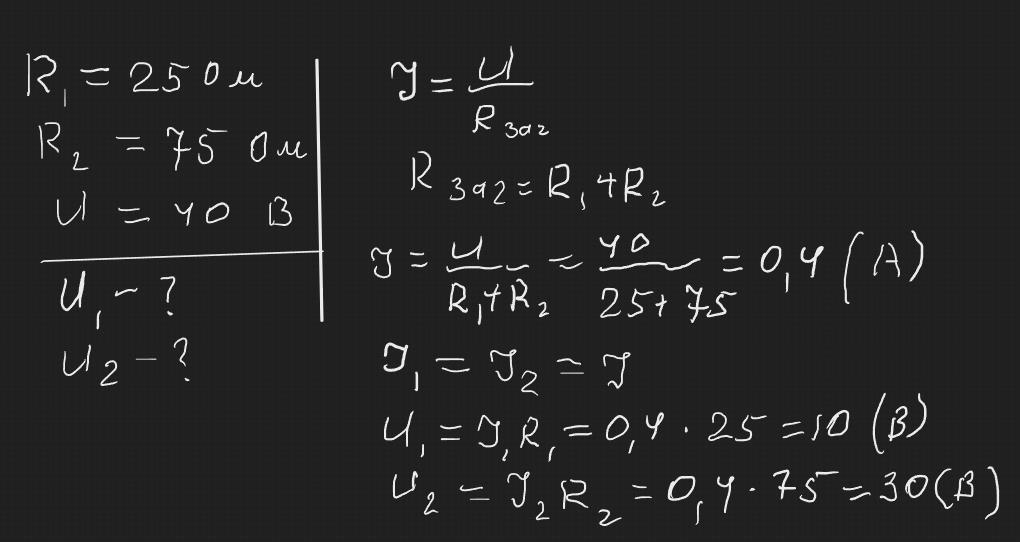 R₁ = 25 Ом
R₂ = 75 Ом
U = 40 В
U₁ - ?
U₂ - ?
I = U / R заг
R заг = R₁ + R₂
I = U / (R₁ + R₂) = 40 / (25 + 75) = 0,4 (А)
I₁ = I₂ = I
U₁ = I₁R₁ = 0,4 · 25 = 10 (В)
U₂ = I₂R₂ = 0,4 · 75 = 30 (В)